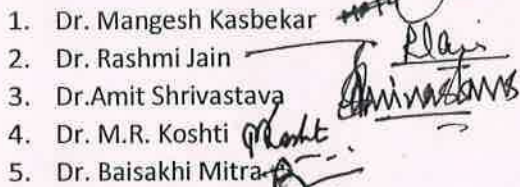 1. Dr. Mangesh Kasbekar
2. Dr. Rashmi Jain
3. Dr.Amit Shrivastava
4. Dr. M.R. Koshti
5. Dr. Baisakhi Mitra